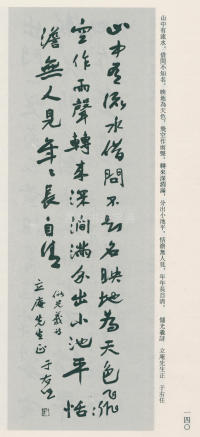 山中有流水，借問不知名，映地為天色，飛空作雨聲，轉來深澗滿，分出小池平，恬澹無人見，年年長自清。 儲光羲詩 立庵先生正 于右任
山中有流水借問不知名映地為天色飛
空作雨聲轉來深澗滿分出小池平恬
澹無人見年々長自清
儲光羲詩
立庵先生正 于右任
一四〇